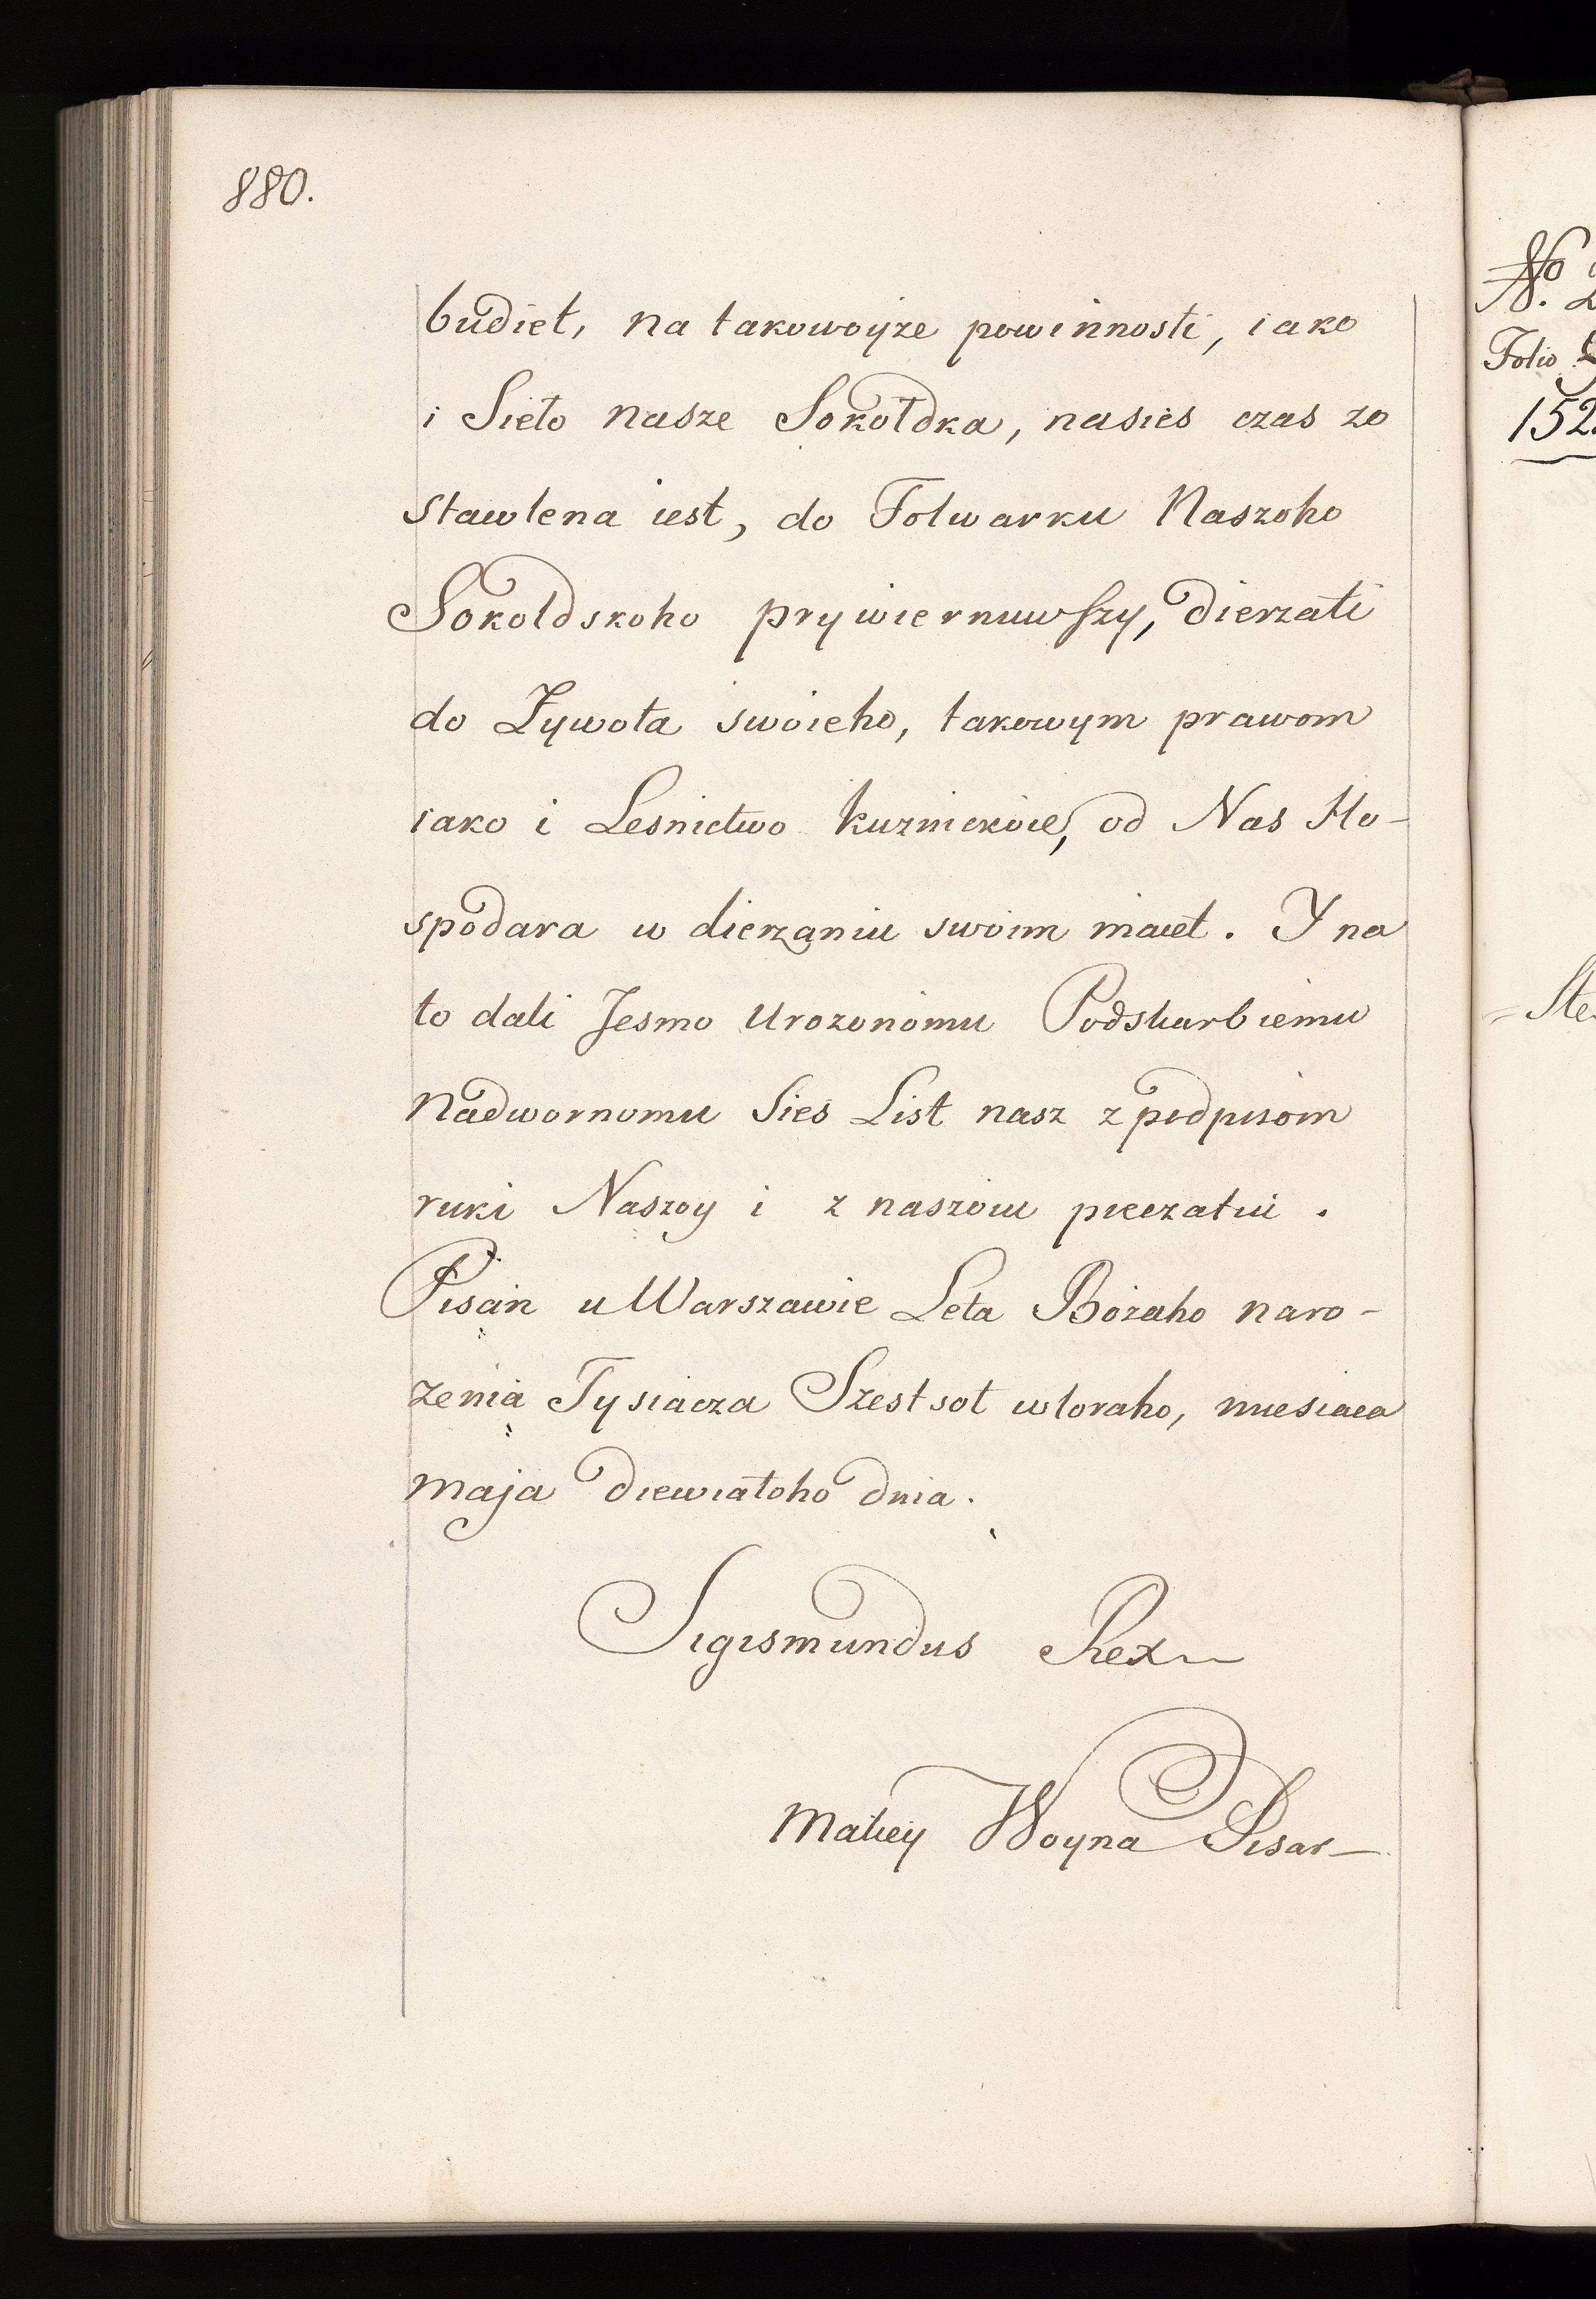 880.
budiet, na takowoyze powinnosti, iako
i Sieło nasze Sokołdka, nasies czas zo
stawlena iest, do Folwarku Naszoho
Sokoldskoho prywiernuwszy, dierzati
do Zywota swoieho, takowym prawom
iako i Lesnictwo kuznickoie, od Nas Ho-
spodara w dierzaniu swoim maiet. Y na
to dali Jesmo Urozonomu Podskarbiemu
Nadwornomu Sies List nasz z podpisom
ruki Naszoy i z naszoiu pieczatiu.
Pisan u Warszawie Leta Bożeho naro-
zenia Tysiacza Szestsot wtoraho, miesiaca
maja diewiatoho dnia.
Sigismundus Rex
Matiey Woyna Pisar
No
Folio
152
= Ste